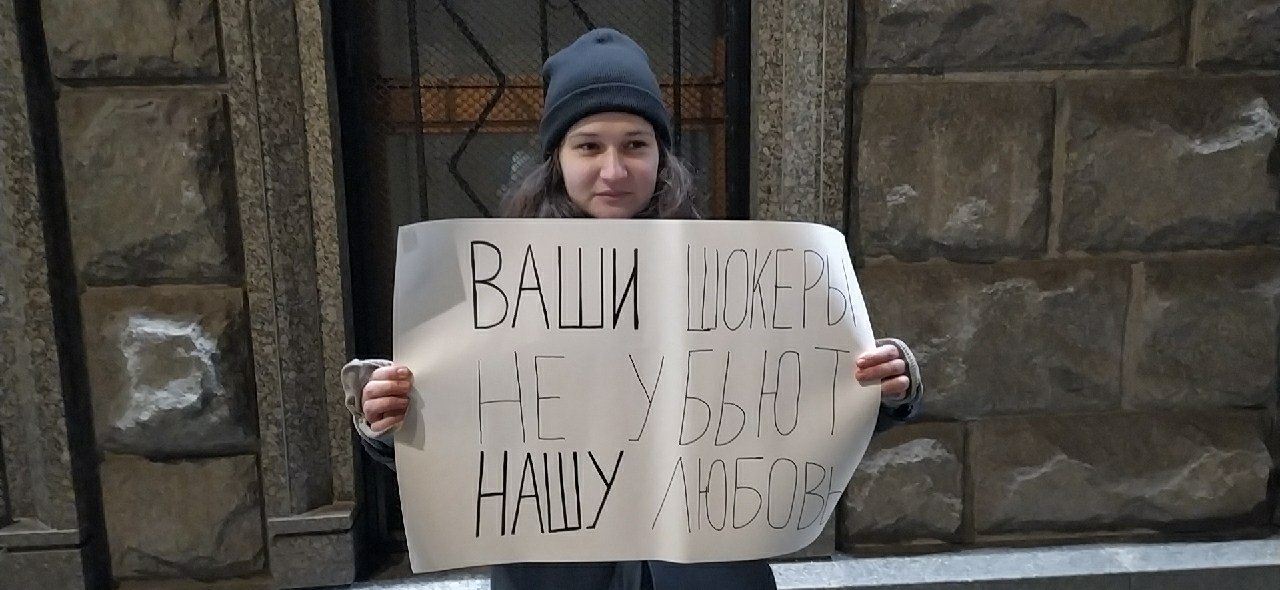 ВАШИ ШОКЕРЫ
НЕ УБЬЮТ
НАШУ ЛЮБОВЬ